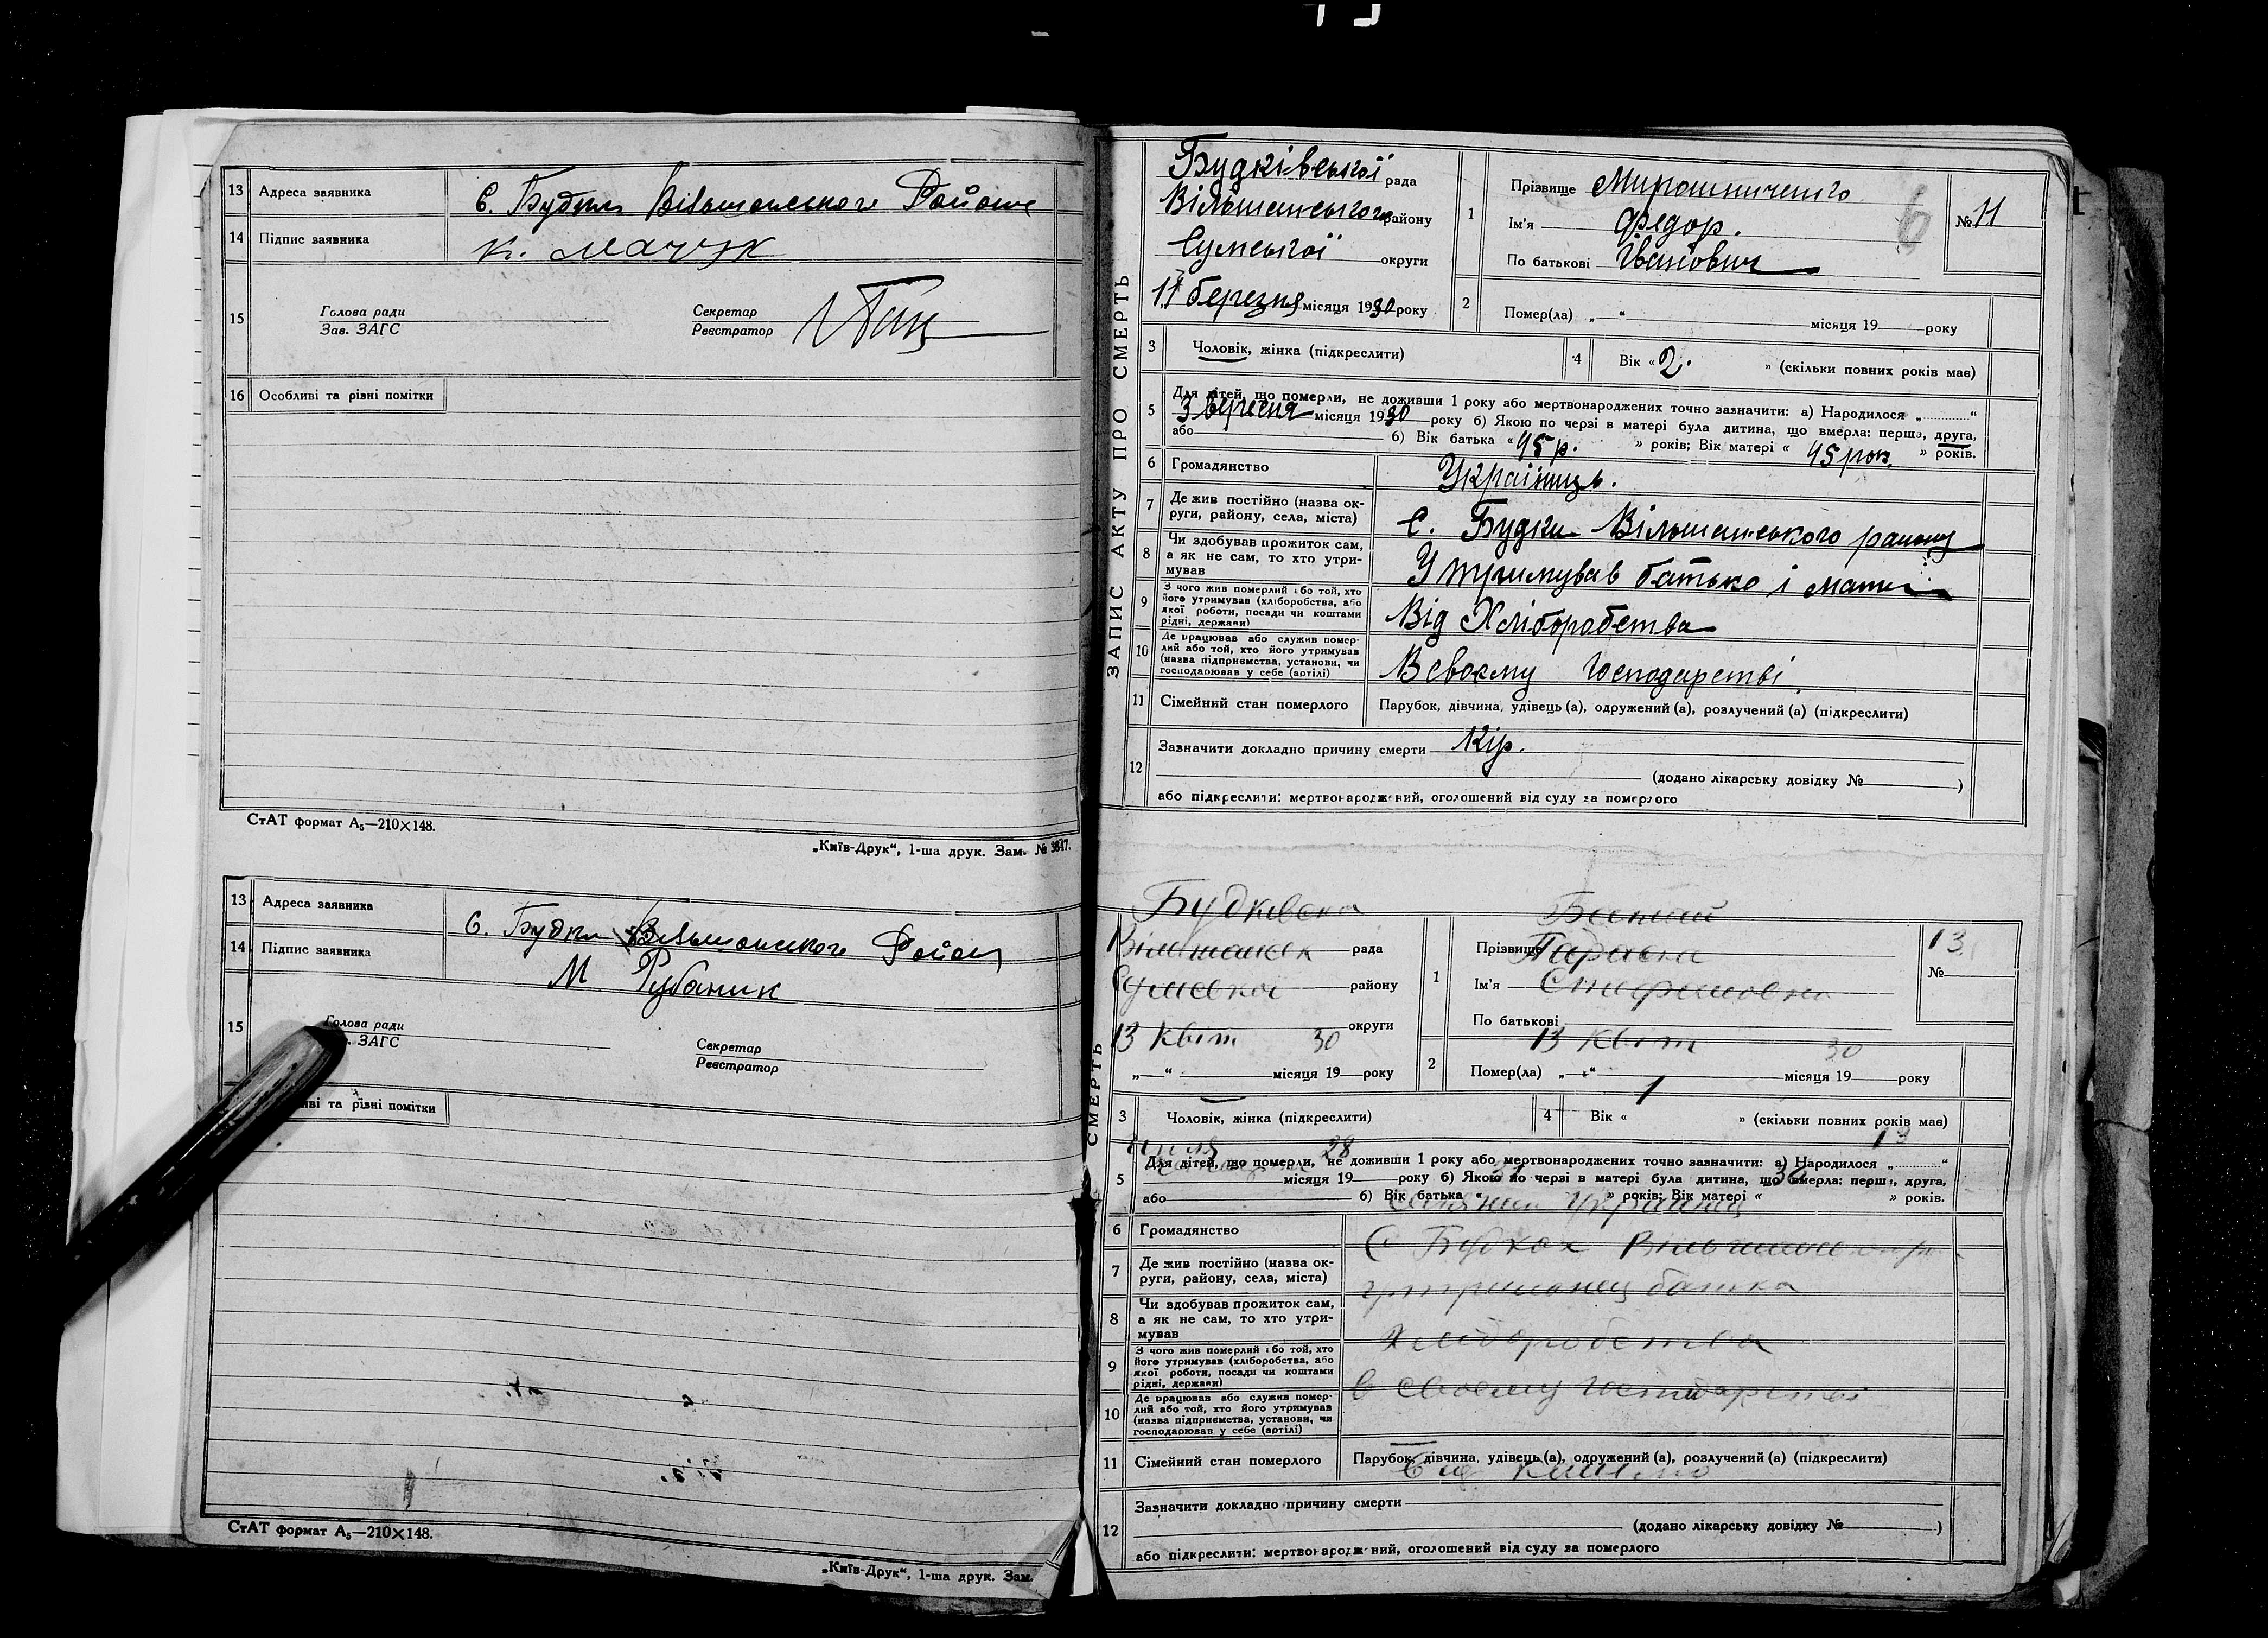 13 Адреса заявника С. Будки Вільшанського Району
14 Підпис заявника К. Мачук
15 Голова ради Секретар
Зав. ЗАГС Реєстратор
16 Особливі та різні помітки
СтАТ формат А₅—210×148.
„Київ-Друк“, 1-ша друк. Зам. № 3847.
13 Адреса заявника
С. Будки Вільшанського Району
14 Підпис заявника
М Рубаник
15 Голова ради Секретар
ЗАГС Реєстратор
та різні помітки
СтАТ формат А₅—210×148.
„Київ-Друк“, 1-ша друк. Зам.
ЗАПИС АКТУ ПРО СМЕРТЬ
Будківської рада
Вільшанського району
Сумської округи
11 березня місяця 1930 року
1 Прізвище Мирошниченко
Ім'я Федор.
По батькові Іванович
6
№ 11
2 Помер(ла) „ “ місяця 19 року
3 Чоловік, жінка (підкреслити) 4 Вік « 2. » (скільки повних років має)
5 Для дітей, що померли, не доживши 1 року або мертвонароджених точно зазначити: а) Народилося „ “
3 вересня місяця 1930 року б) Якою по черзі в матері була дитина, що вмерла: перша, друга,
або б) Вік батька « 45 р. » років; Вік матері « 45 рок. » років.
6 Громадянство Українець.
7 Де жив постійно (назва округи, району, села, міста) С. Будки Вільшанського району
8 Чи здобував прожиток сам, а як не сам, то хто утримував Утримував батько і мати
9 З чого жив померлий або той, хто його утримував (хліборобства, або якої роботи, посади чи коштами рідні, держави) Від Хліборобства
10 Де працював або служив померлий або той, хто його утримував (назва підприємства, установи, чи господарював у себе (артілі) В своєму господарстві
11 Сімейний стан померлого Парубок, дівчина, удівець (а), одружений (а), розлучений (а) (підкреслити)
12 Зазначити докладно причину смерти Кір.
(додано лікарську довідку № )
або підкреслити: мертвонароджений, оголошений від суду за померлого
СМЕРТЬ
Будківська
Вільшанск рада
Сумської району
13 Квіт 30 округи
„ “ місяця 19 року
1 Прізвище
Ім'я
По батькові
13.
№
13 Квіт 30
2 Помер(ла) „ “ місяця 19 року
3 Чоловік, жінка (підкреслити) 4 Вік « 1 » (скільки повних років має)
13
28
5 Для дітей, що померли, не доживши 1 року або мертвонароджених точно зазначити: а) Народилося „ “
місяця 19 року б) Якою по черзі в матері була дитина, що вмерла: перша, друга,
або б) Вік батька « » років; Вік матері « » років.
6 Громадянство
С Будках
7 Де жив постійно (назва округи, району, села, міста)
утриманец батка
8 Чи здобував прожиток сам, а як не сам, то хто утримував
Хлiборобства
9 З чого жив померлий або той, хто його утримував (хліборобства, або якої роботи, посади чи коштами рідні, держави)
в своему господарстві
10 Де працював або служив померлий або той, хто його утримував (назва підприємства, установи, чи господарював у себе (артілі)
11 Сімейний стан померлого Парубок, дівчина, удівець (а), одружений (а), розлучений (а) (підкреслити)
12 Зазначити докладно причину смерти
(додано лікарську довідку № )
або підкреслити: мертвонароджений, оголошений від суду за померлого